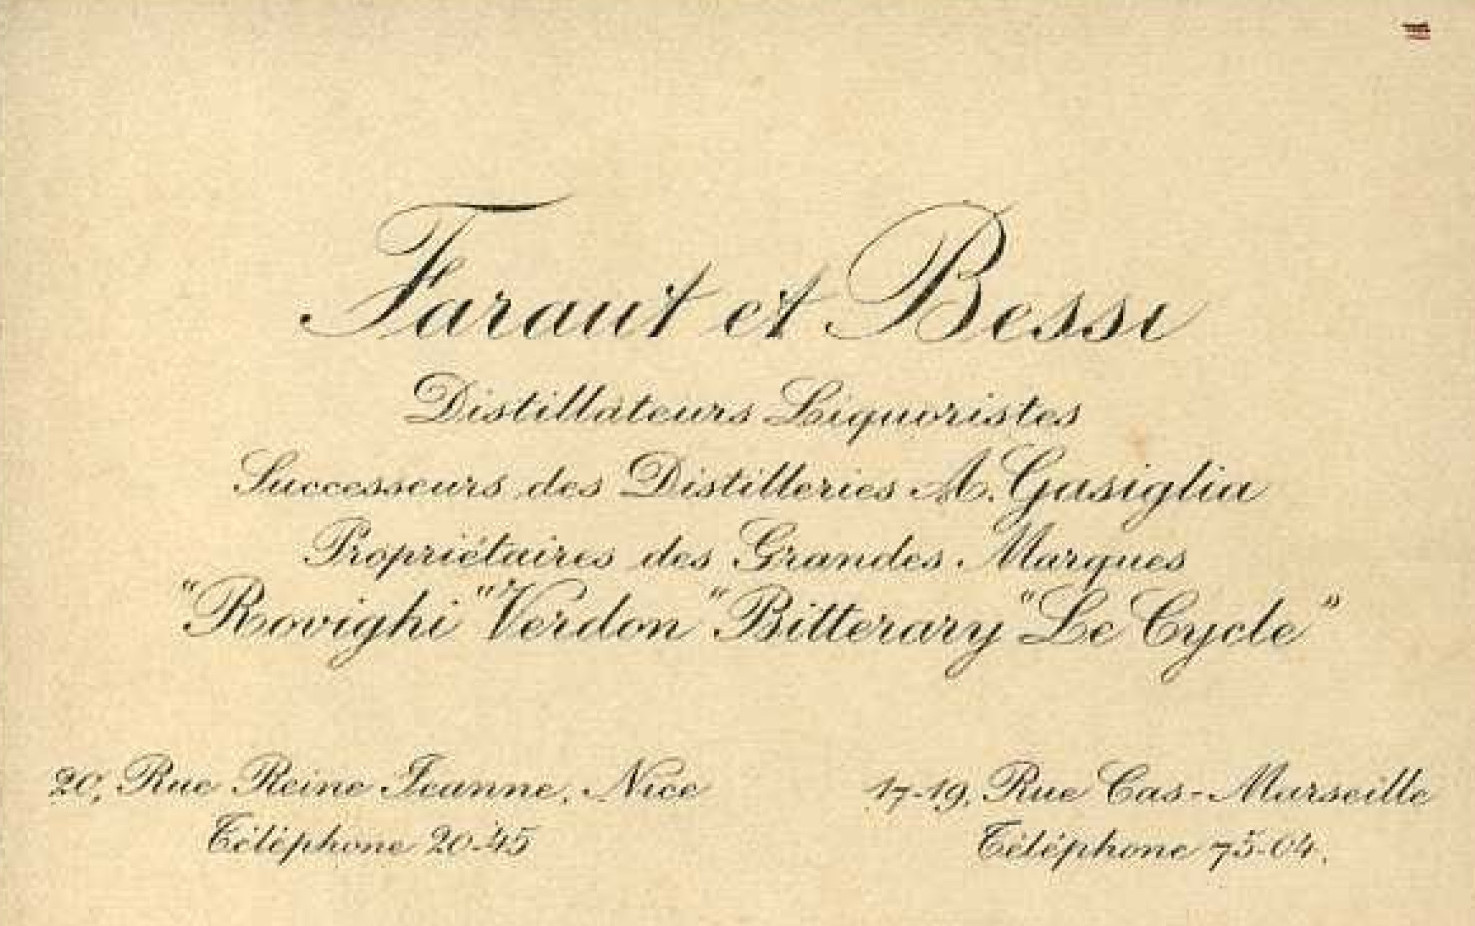 Faraut et Bessi
Distillateurs Liquoristes
Successeurs des Distilleries A. Gasiglia
Propriétaires des Grandes Marques
"Rovighi" Verdon "Bitterary" Le Cycle"
20, Rue Reine Jeanne, Nice
Téléphone 20-45
17-19, Rue Cas - Marseille
Téléphone 75-04.